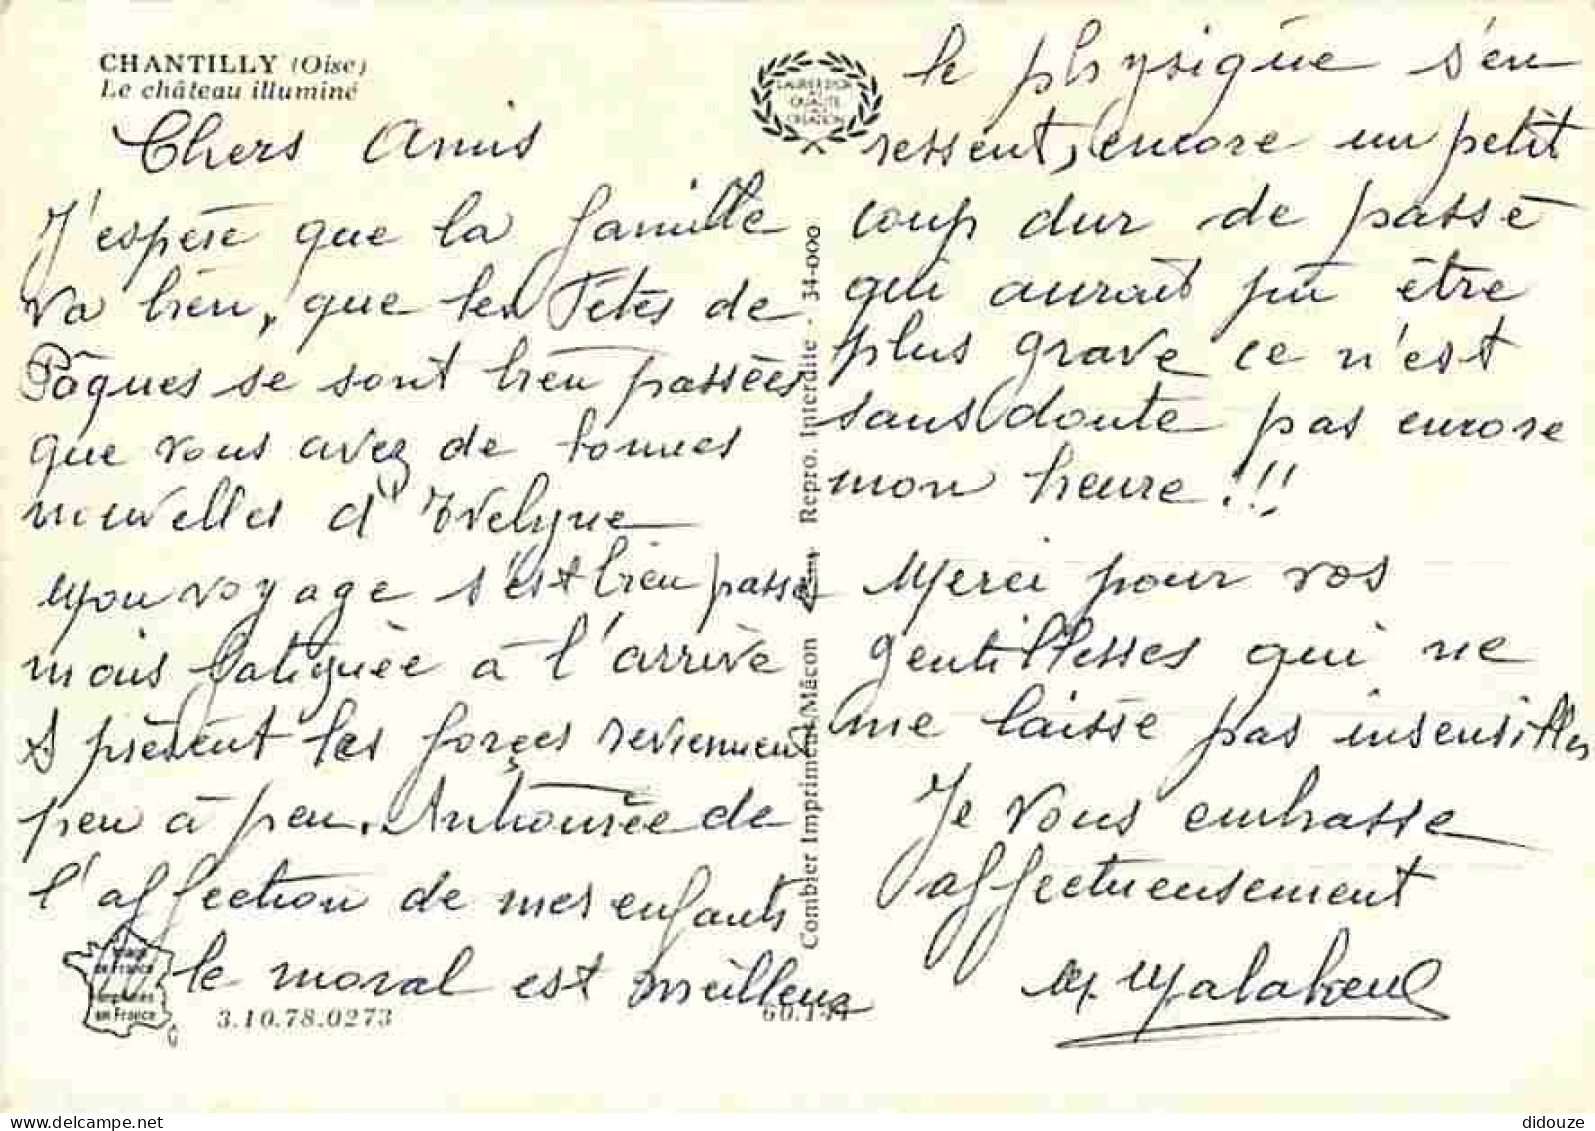 CHANTILLY (Oise)
Le château illuminé
Chers Amis
J'espère que la famille
va bien, que les Fêtes de
Pâques se sont bien passées
que vous avez de bonnes
nouvelles d'Evelyne
Mon voyage s'est bien passé
mais fatiguée à l'arrivé
A présent les forçes reviennent
peu à peu. Entourée de
l'affection de mes enfants
le moral est meilleur
le physique s'en
ressent, encore un petit
coup dur de passé
qui aurait pû être
plus grave ce n'est
sans doute pas encore
mon heure !!!
Merci pour vos
gentillesses qui ne
me laisse pas insensibles
Je vous embrasse
affectueusement
LAURIER D'OR
QUALITÉ
CRÉATION
Combier Imprimeur Mâcon Repro. Interdite - 34-000
Image
de France
imprimées
en France
3.10.78.0273
didouze